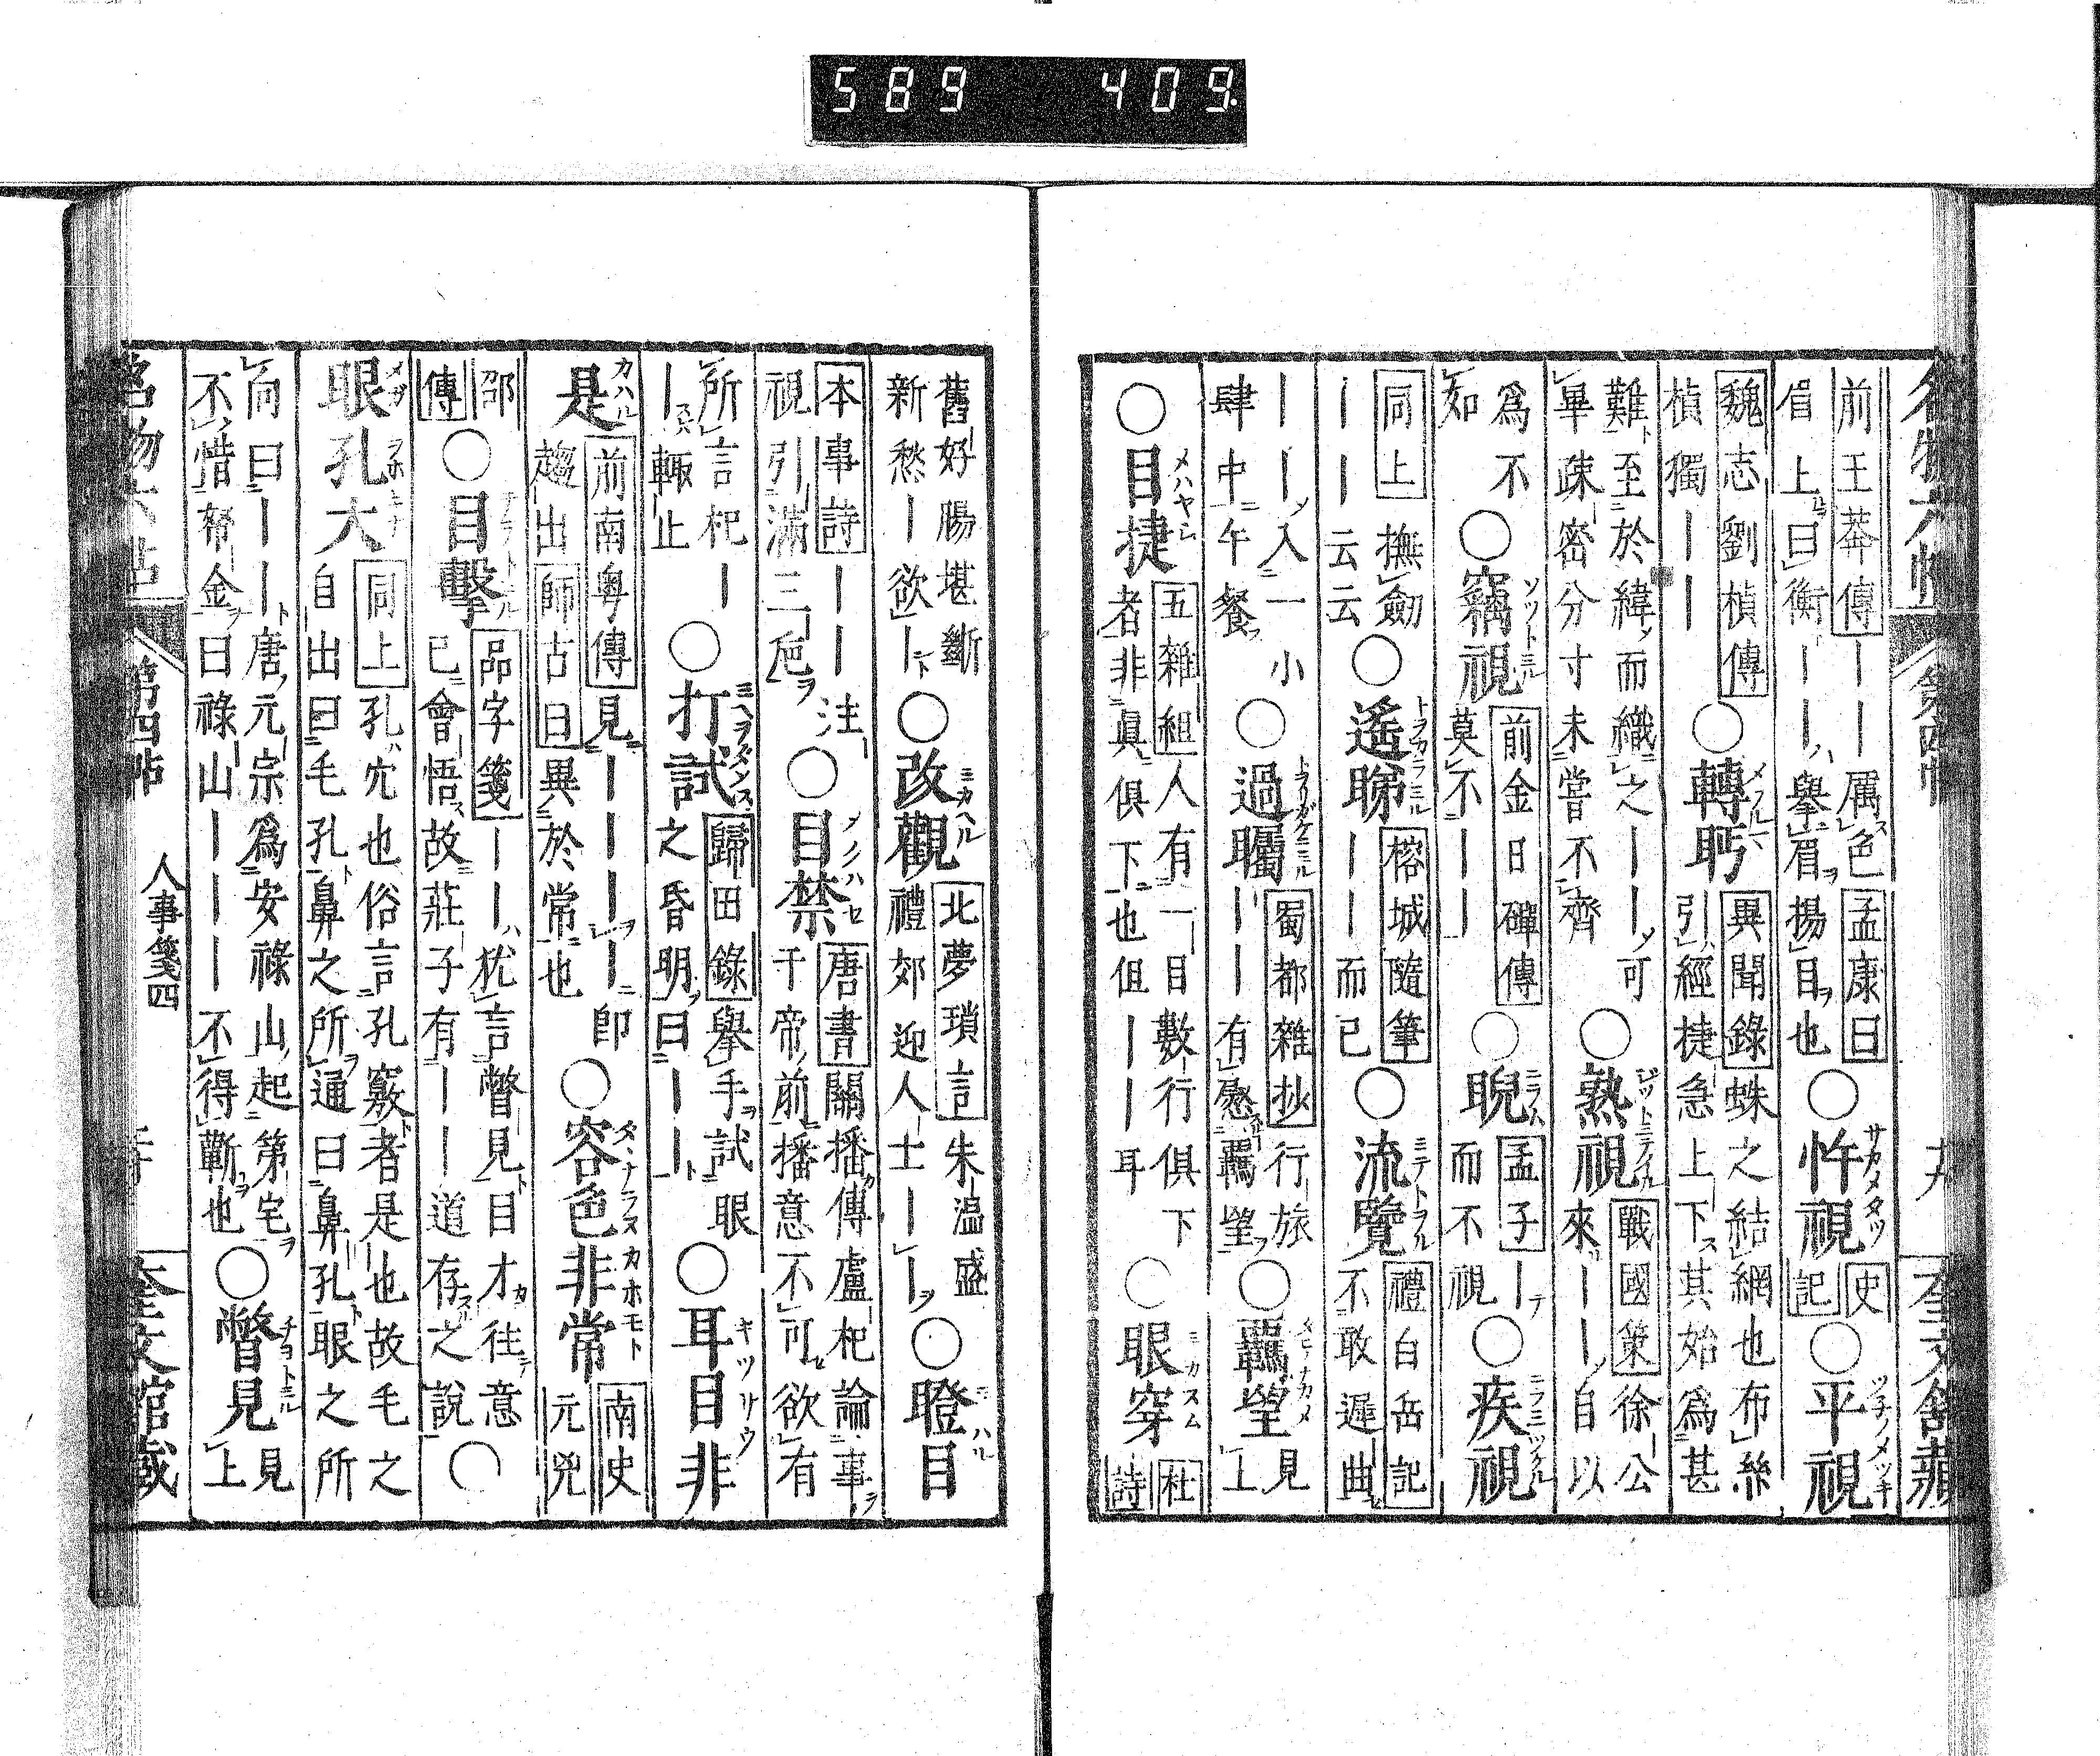 589 409.
名物六帖 第四帖 奎文館藏
前王莽傳｜｜厲色孟康曰
眉上曰衡｜｜擧眉揚目也〇忤視史記〇平視
魏志劉楨傳
楨獨｜｜〇轉眄異聞錄蛛之結網也布絲
引經捷急上下其始爲甚
難至於緯而織之｜｜可
畢疎密分寸未嘗不齊〇熟視戰國策徐公
來｜｜自以
爲不
如〇竊視前金日磾傳
莫不｜｜〇睨孟子｜
而不視〇疾視
同上撫劒
｜｜云云〇遙睇榕城隨筆
｜｜而已〇流覽禮白岳記
不敢遲曲
｜｜入一小
肆中午餐〇過矚蜀都雜抄行旅
｜｜有慼羈望〇羈望見上
〇目捷五雜組人有一目數行俱下
者非眞俱下也但｜｜耳〇眼穿杜詩
舊好腸堪斷
新愁｜欲｜〇改觀北夢瑣言朱溫盛
禮郊迎人士｜｜〇瞪目
本事詩｜｜注
視引滿三巵〇目禁唐書關播傳盧杞論事
于帝前播意不可欲有
所言杞｜
｜輒止〇打試歸田錄擧手試眼
之昏明曰｜｜〇耳目非
是前南粤傳見｜｜｜｜卽
趨出師古曰異於常也〇容色非常南史
元兇
邵
傳〇目擊品字箋｜｜猶言瞥見目才往意
已會悟故莊子有｜｜道存之說〇
眼孔大同上孔穴也俗言孔竅者是也故毛之
自出曰毛孔鼻之所通曰鼻孔眼之所
向曰｜｜唐元宗爲安祿山起第宅
不惜帑金曰祿山｜｜｜不得靳也〇瞥見見上
名物六帖 第四帖 人事箋四 奎文館藏